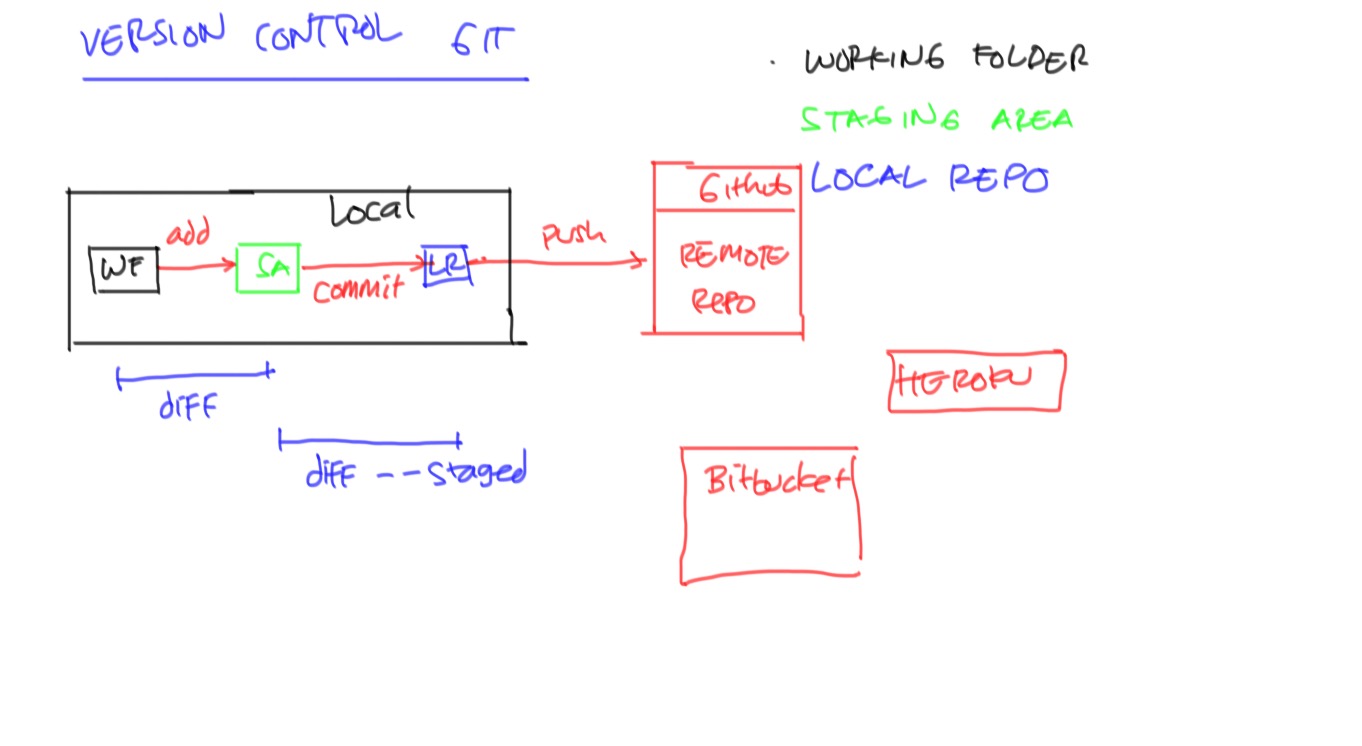 VERSION CONTROL GIT
. WORKING FOLDER
STAGING AREA
LOCAL REPO
Local
add
WF
SA
commit
LR
push
Github
REMOTE
REPO
HEROKU
diFF
diFF --staged
Bitbucket